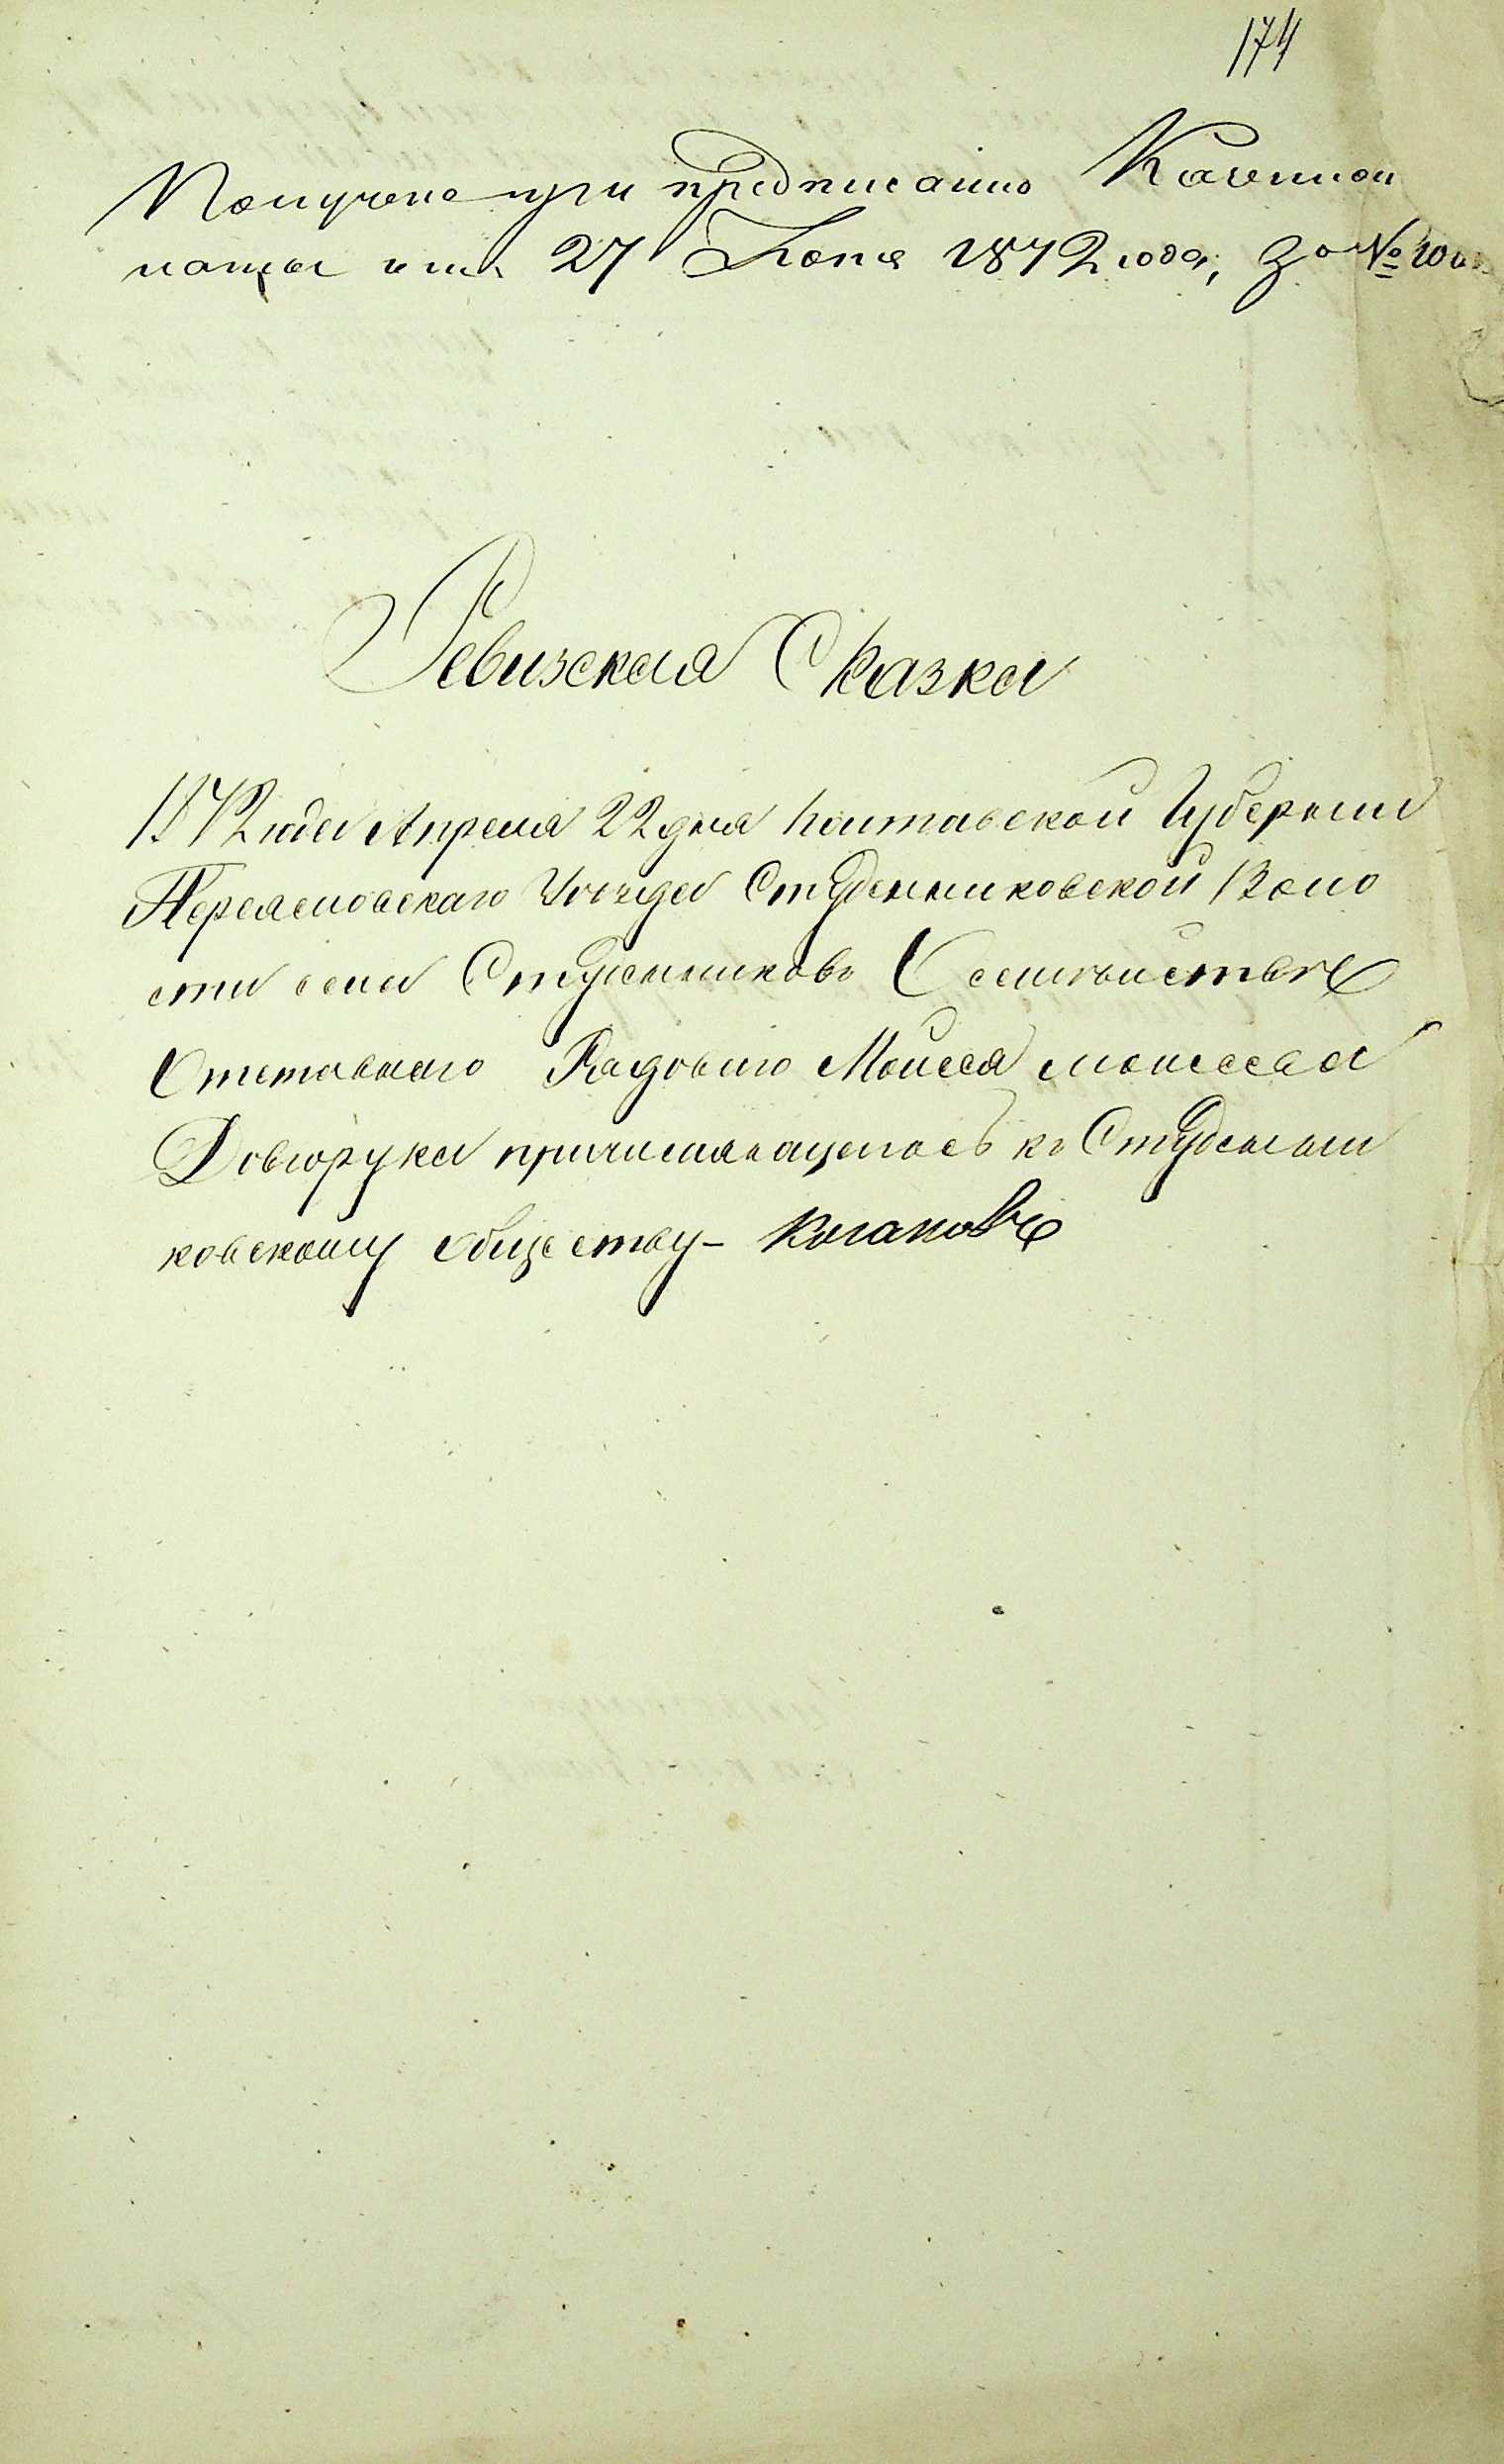 174
Получена при предписанию Казенной
палаты отъ 27 Іюня 1872 года, за №
Ревизская Сказка
1872 года Апреля 22 дня Полтавской Губерніи
Переясловскаго Уѣзда Студенниковской Воло
сти села Студенниковъ О семѣйствѣ
Отставнаго Рядового Моисея Моисеева
Довгорука причисляющегось къ Студенни
ковскому обществу - Козаковъ